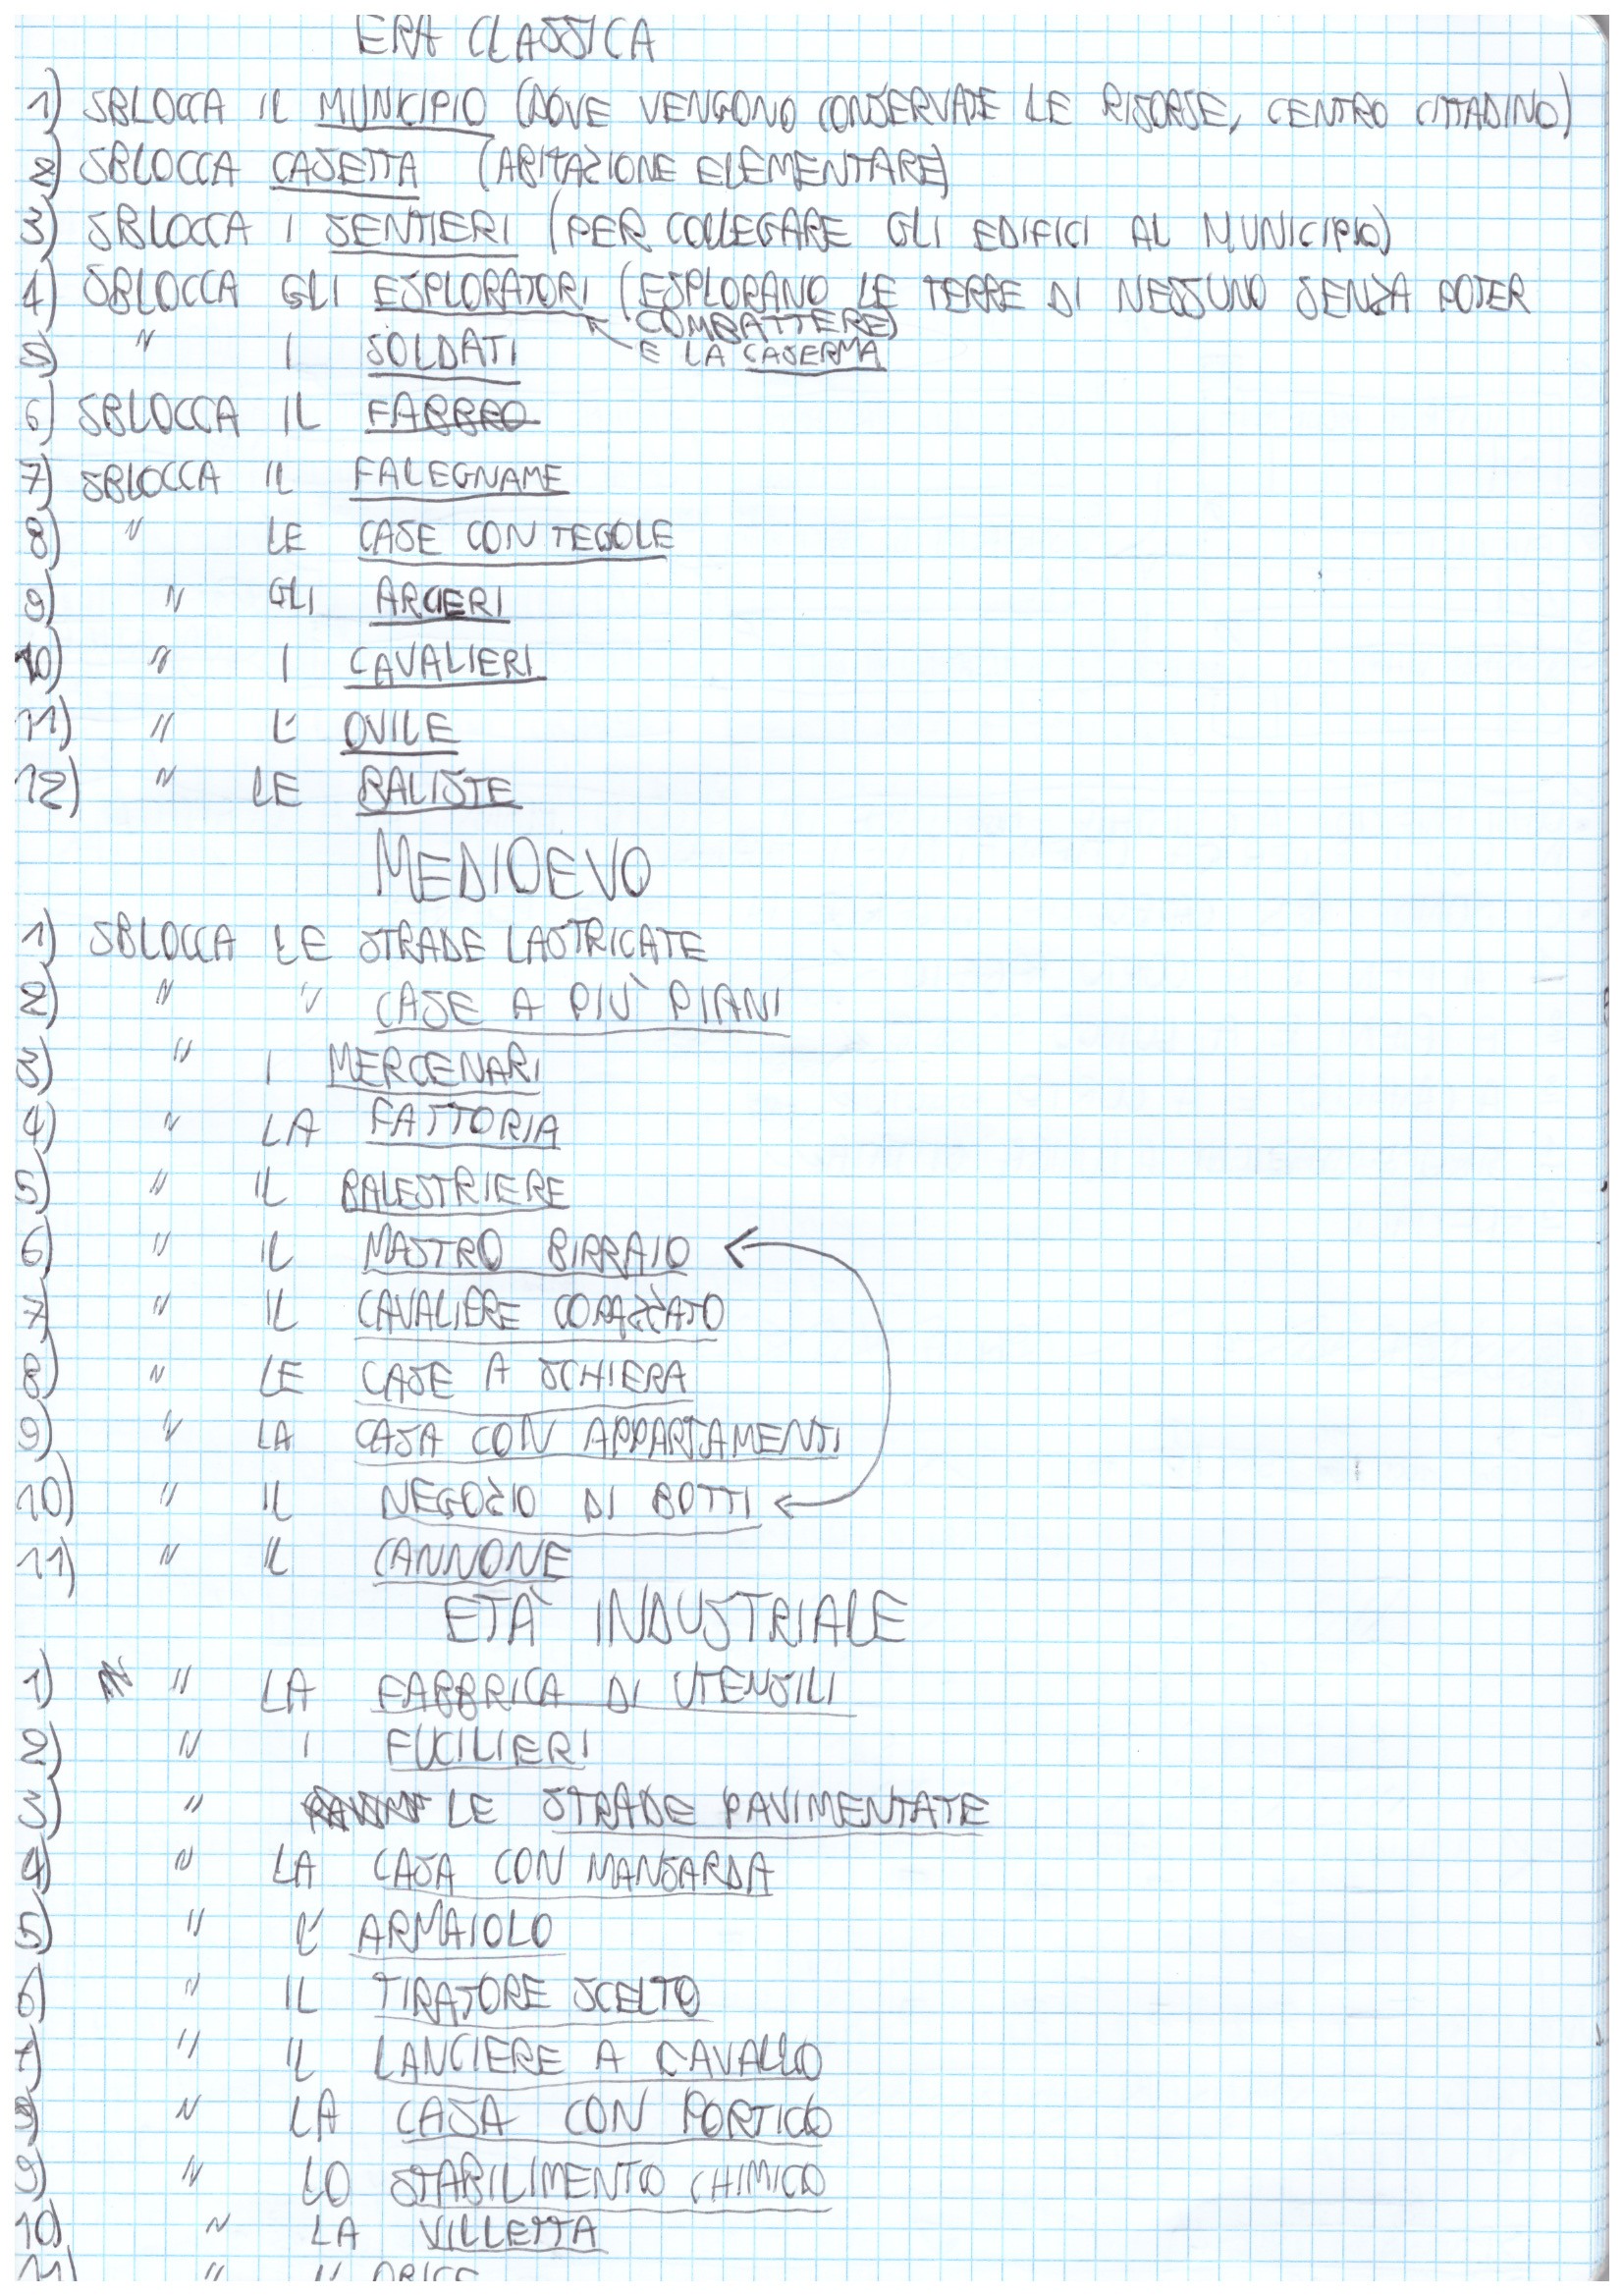 ERA CLASSICA
1) SBLOCCA IL MUNICIPIO (DOVE VENGONO CONSERVATE LE RISORSE, CENTRO CITTADINO)
2) SBLOCCA CASETTA (ABITAZIONE ELEMENTARE)
3) SBLOCCA I SENTIERI (PER COLLEGARE GLI EDIFICI AL MUNICIPIO)
4) SBLOCCA GLI ESPLORATORI (ESPLORANO LE TERRE DI NESSUNO SENZA POTER
COMBATTERE)
5) " I SOLDATI E LA CASERMA
6) SBLOCCA IL FABBRO
7) SBLOCCA IL FALEGNAME
8) " LE CASE CON TEGOLE
9) " GLI ARCIERI
10) " I CAVALIERI
11) " L' OVILE
12) " LE BALISTE
MEDIOEVO
1) SBLOCCA LE STRADE LASTRICATE
2) " " CASE A PIÙ PIANI
3) " I MERCENARI
4) " LA FATTORIA
5) " IL BALESTRIERE
6) " IL MASTRO BIRRAIO
7) " IL CAVALIERE CORAZZATO
8) " LE CASE A SCHIERA
9) " LA CASA CON APPARTAMENTI
10) " IL NEGOZIO DI BOTTI
11) " IL CANNONE
ETÀ INDUSTRIALE
1) " LA FABBRICA DI UTENSILI
2) " I FUCILIERI
3) " LE STRADE PAVIMENTATE
4) " LA CASA CON MANSARDA
5) " L' ARMAIOLO
6) " IL TIRATORE SCELTO
7) " IL LANCIERE A CAVALLO
8) " LA CASA CON PORTICO
9) " LO STABILIMENTO CHIMICO
10) " LA VILLETTA
11) "